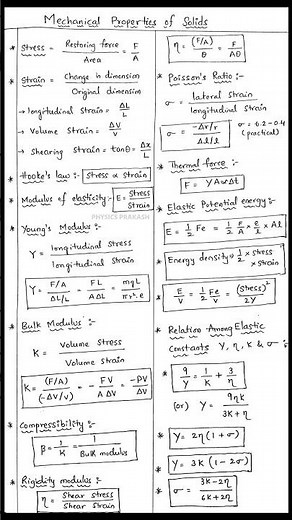 Mechanical Properties of Solids
* Stress = Restoring force / Area = F/A
* Strain = Change in dimension / Original dimension
→ longitudinal Strain = ΔL/L
→ Volume Strain = ΔV/V
→ Shearing Strain = tanθ = Δx/L
* Hooke's law :- Stress ∝ Strain
* Modulus of elasticity :- E = Stress/Strain
PHYSICS PRAKASH
* Young's Modulus :-
Y = longitudinal Stress / longitudinal Strain
Y = (F/A)/(ΔL/L) = FL/AΔL = mgL/πr².e
* Bulk Modulus :-
K = Volume Stress / Volume Strain
K = (F/A)/(-ΔV/V) = -FV/AΔV = -PV/ΔV
* Compressibility :-
β = 1/K = 1/Bulk modulus
* Rigidity modulus :-
η = Shear Stress / Shear Strain
η = (F/A)/θ = F/Aθ
* Poisson's Ratio :-
σ = lateral strain / longitudinal strain
σ = (-Δr/r)/(Δl/l)
σ = 0.2-0.4
(practical)
* Thermal force :-
F = YA∝Δt
* Elastic Potential energy :-
E = 1/2 Fe = 1/2 F/A × e/l × Al
* Energy density = 1/2 × stress × strain
* E/V = 1/2 Fe/V = (Stress)²/2Y
* Relation Among Elastic
Constants Y, η, K & σ :-
* 9/Y = 1/K + 3/η
(or) Y = 9ηK/(3K+η)
* Y = 2η(1+σ)
* Y = 3K(1-2σ)
* σ = (3K-2η)/(6K+2η)